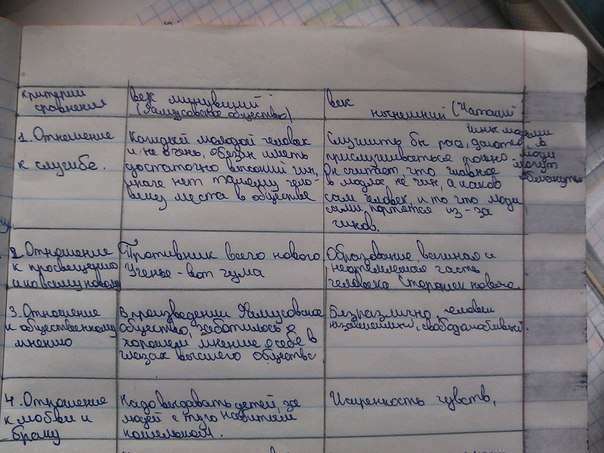 критерий
сравнения
век минувший
(Фамусовское общество)
век
нынешний (Чацкий)
1. Отношение
к службе.
Каждый молодой человек
и не очень, обязан иметь
достаточно высокий чин,
иначе нет такому чело-
веку места в обществе
Служить бы рад,
прислуживаться тошно
Он считает, что главное
в людях не чин, а каков
сам человек, и то что люди
сами портятся из-за
чинов.
чины людьми
даются, а
люди
могут
обмануться
2. Отношение
к просвещению
и ко всему новому
Противник всего нового
Ученье - вот чума
Образование важная и
неотъемлемая часть
человека Сторонник нового
3. Отношение
к общественному
мнению
В произведении Фамусовское
общество заботилось о
хорошем мнение о себе в
глазах высшего общества.
Безразлично, человек
независимый, свободолюбивый.
4. Отношение
к любви и
браку
Надо выдавать детей, за
людей с туго набитым
кошельком.
Искренность чувств,